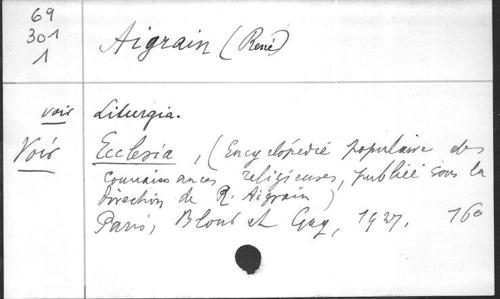 69
301
1
Aigrain (René)
voir Liturgia.
Voir Ecclesia, (Encyclopédie populaire des
connaissances religieuses, publiée sous la
Direction de R. Aigrain)
Paris, Bloud et Gay, 1927. 16o